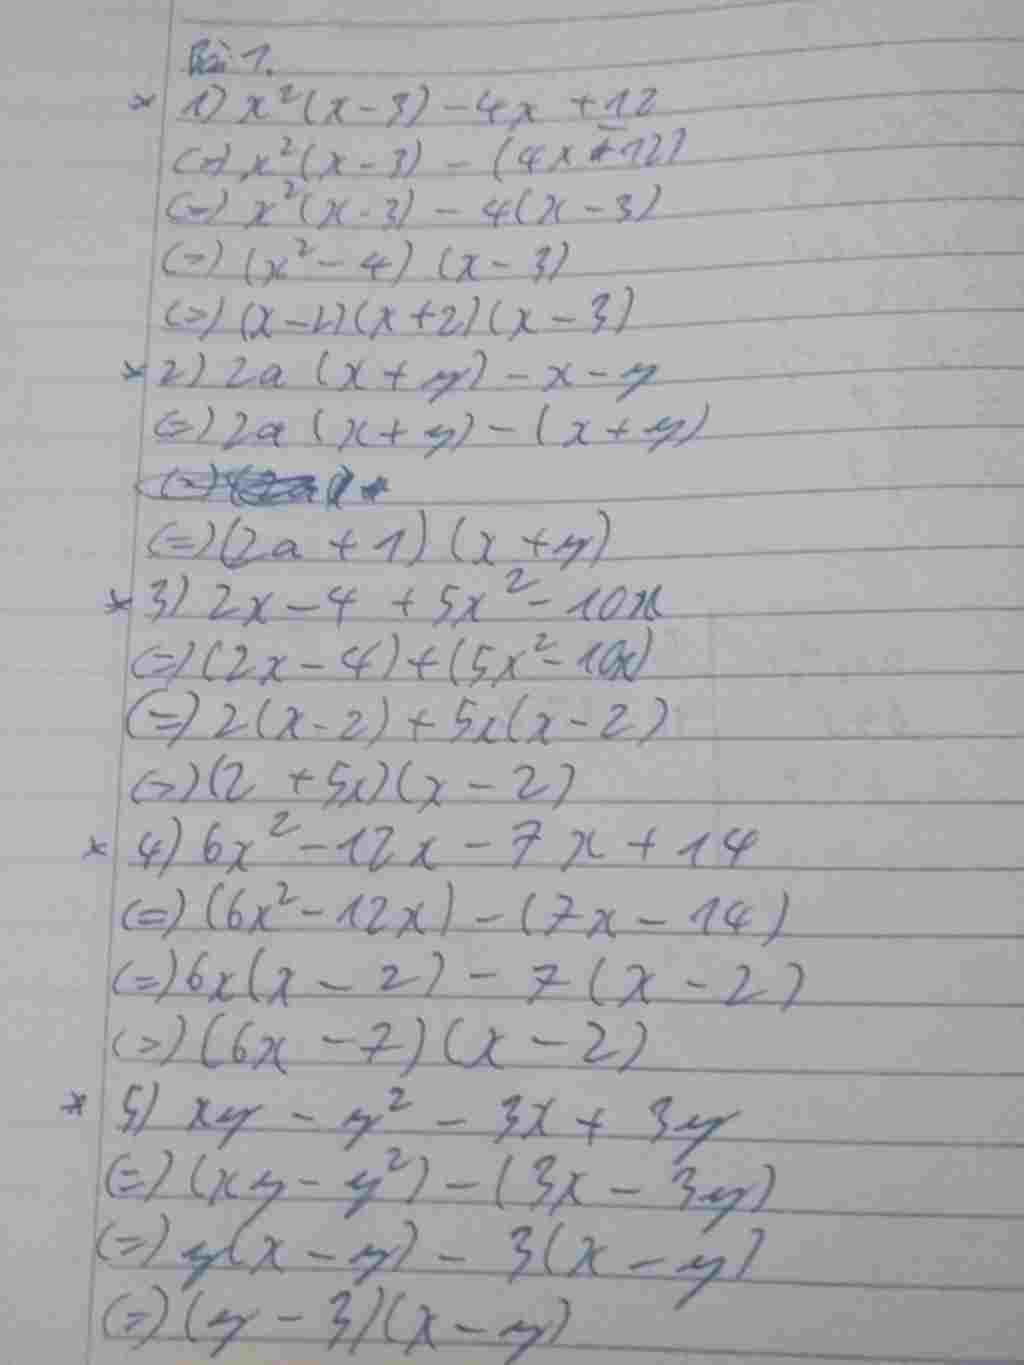 Bài 1.
* 1) x²(x-3) - 4x + 12
(=) x²(x-3) - (4x + 12)
(=) x²(x-3) - 4(x-3)
(=) (x² - 4) (x - 3)
(=) (x-2)(x+2)(x-3)
* 2) 2a (x+y) - x - y
(=) 2a (x+y) - (x+y)
(=)
(=) (2a + 1) (x + y)
* 3) 2x - 4 + 5x² - 10x
(=) (2x - 4) + (5x² - 10x)
(=) 2(x-2) + 5x(x-2)
(=) (2 + 5x)(x - 2)
* 4) 6x² - 12x - 7x + 14
(=) (6x² - 12x) - (7x - 14)
(=) 6x(x - 2) - 7(x - 2)
(=) (6x - 7)(x - 2)
* 5) xy - y² - 3x + 3y
(=) (xy - y²) - (3x - 3y)
(=) y(x - y) - 3(x - y)
(=) (y - 3)(x - y)